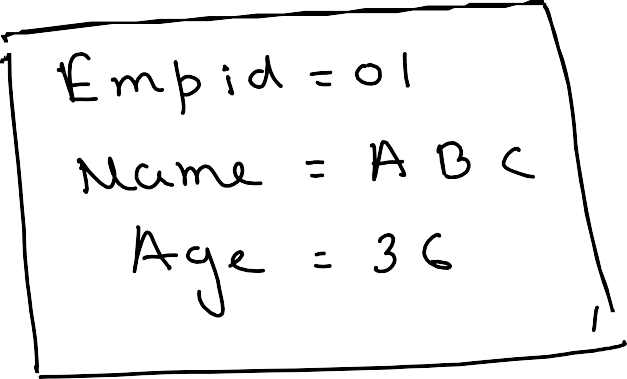 Empid = 01
Name = A B C
Age = 36